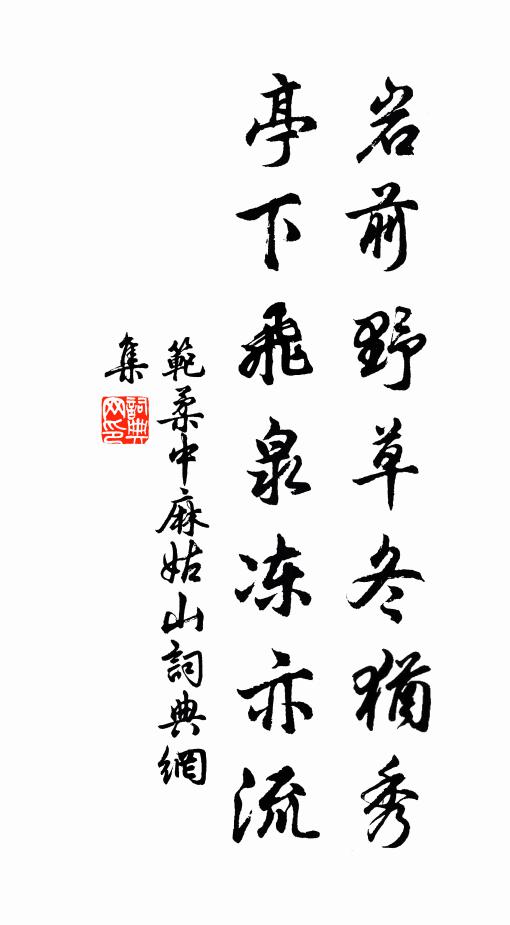 岩前野草冬猶秀
亭下飛泉冻亦流
範柔中麻姑山詞典網
集
詞典網印